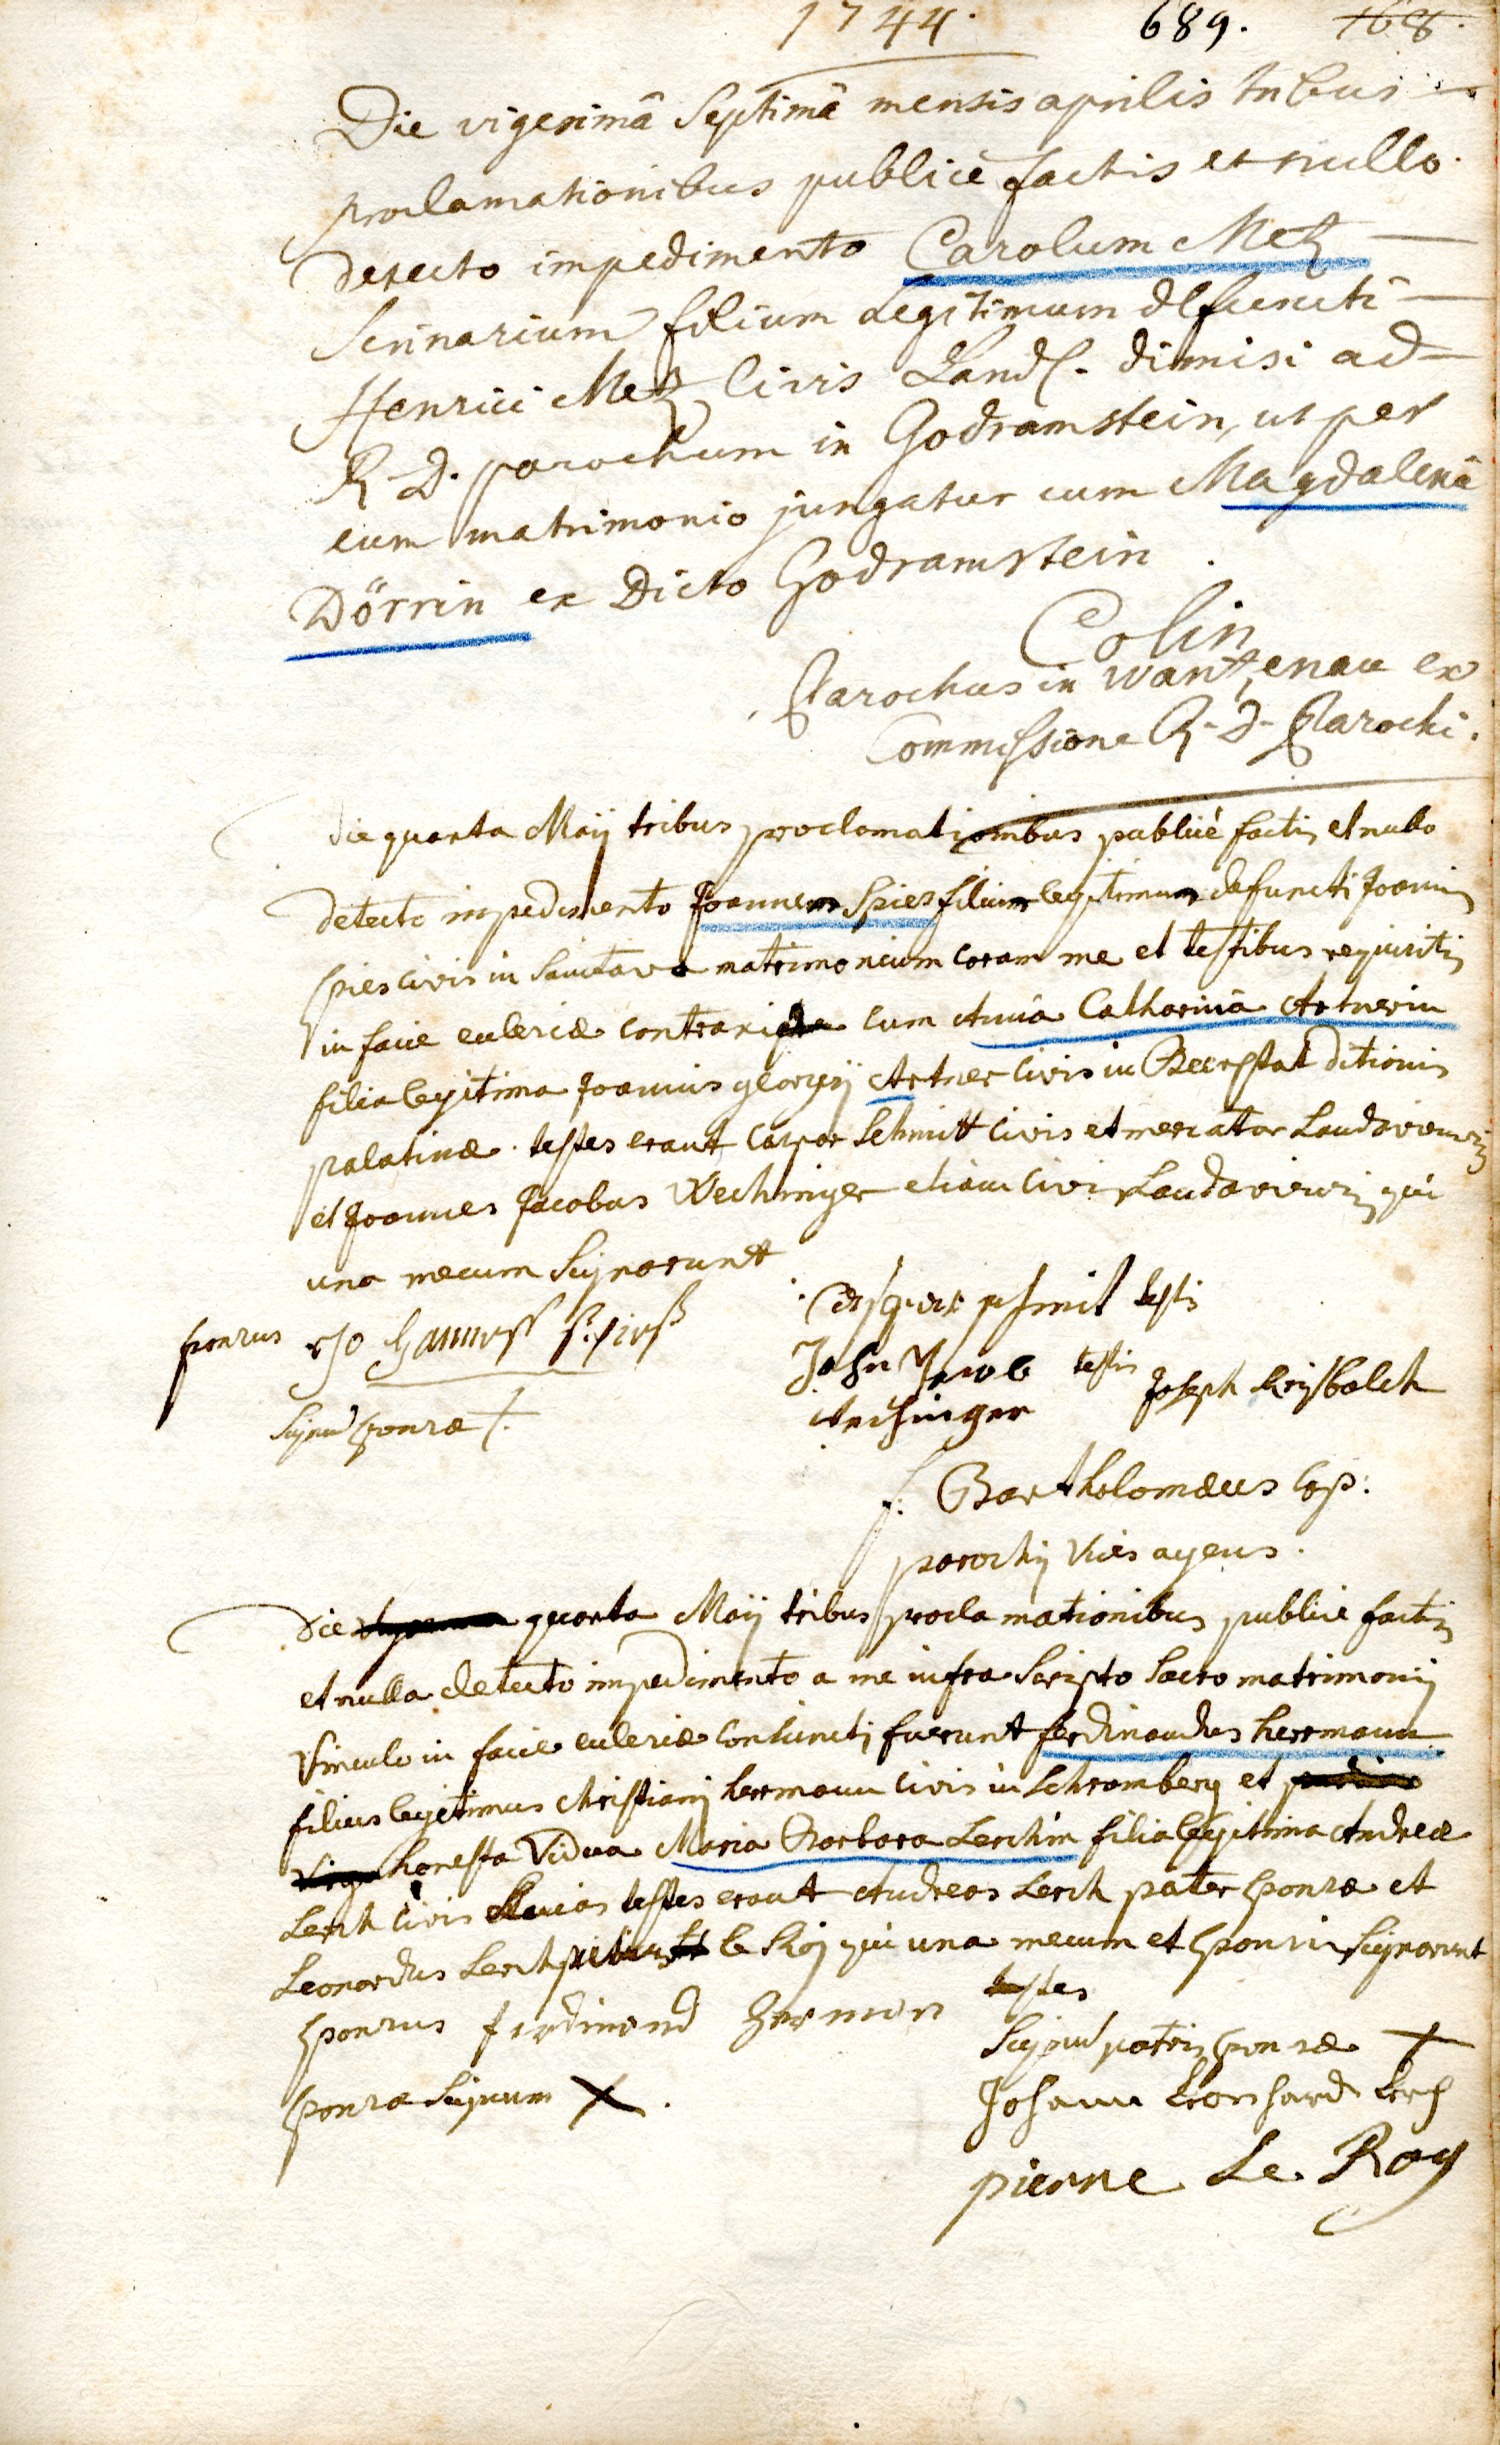 1744. 689. 168.
Die vigesimâ Septimâ mensis aprilis tribus
proclamationibus publicè factis et nullo
detecto impedimento Carolum Metz
Scrinarium filium Legitimum defuncti
Henrici Metz Civis Land. dimisi ad
R. D. parochum in Godramstein, ut per
eum matrimonio jungatur cum Magdalenâ
Dörrin ex Dicto Godramstein.
Colin
Parochus in Wantzenau ex
Commissione R. D. Parochi.
die quarta Maij tribus proclamationibus publicé factis et nullo
detecto impedimento Joannem Spies filium legitimum defuncti Joannis
Spies civis in matrimonium coram me et testibus requisitis
in facie ecclesiæ cum Annâ Catharinâ Artnerin
filia legitima Joannis georgij Artner civis in Beerstat ditionis
palatinæ. testes erant Caspar Schmitt civis et mercator Landaviensis
et Joannes Jacobus Aechinger etiam civis Landaviensis qui
una mecum Signarunt
sponsus Hanness spiess
Signum sponsæ +.
Casper schmit testis
Johan Jacob testis
Aechinger
Joseph
f. Bartholomæus Cap:
parochij vices agens.
Die quarta Maij tribus proclamationibus publice factis
et nullo detecto impedimento a me infra Scripto Sacro matrimonij
Vinculo in facie ecclesiæ coniuncti fuerunt ferdinandus herrmann
filius legitimus christianij herrmann civis in Schramberg et
honesta Vidua Maria Barbara Lerchin filia legitima Andreæ
Lerch civis testes erant Andreas Lerch pater sponsæ et
Leonardus Lerch le Roy qui una mecum et sponsis Signarunt
testes
sponsus ferdinand Herman
Signum patris sponsæ +
sponsæ Signum X.
Johann Leonhard Lerch
pierre Le Roy